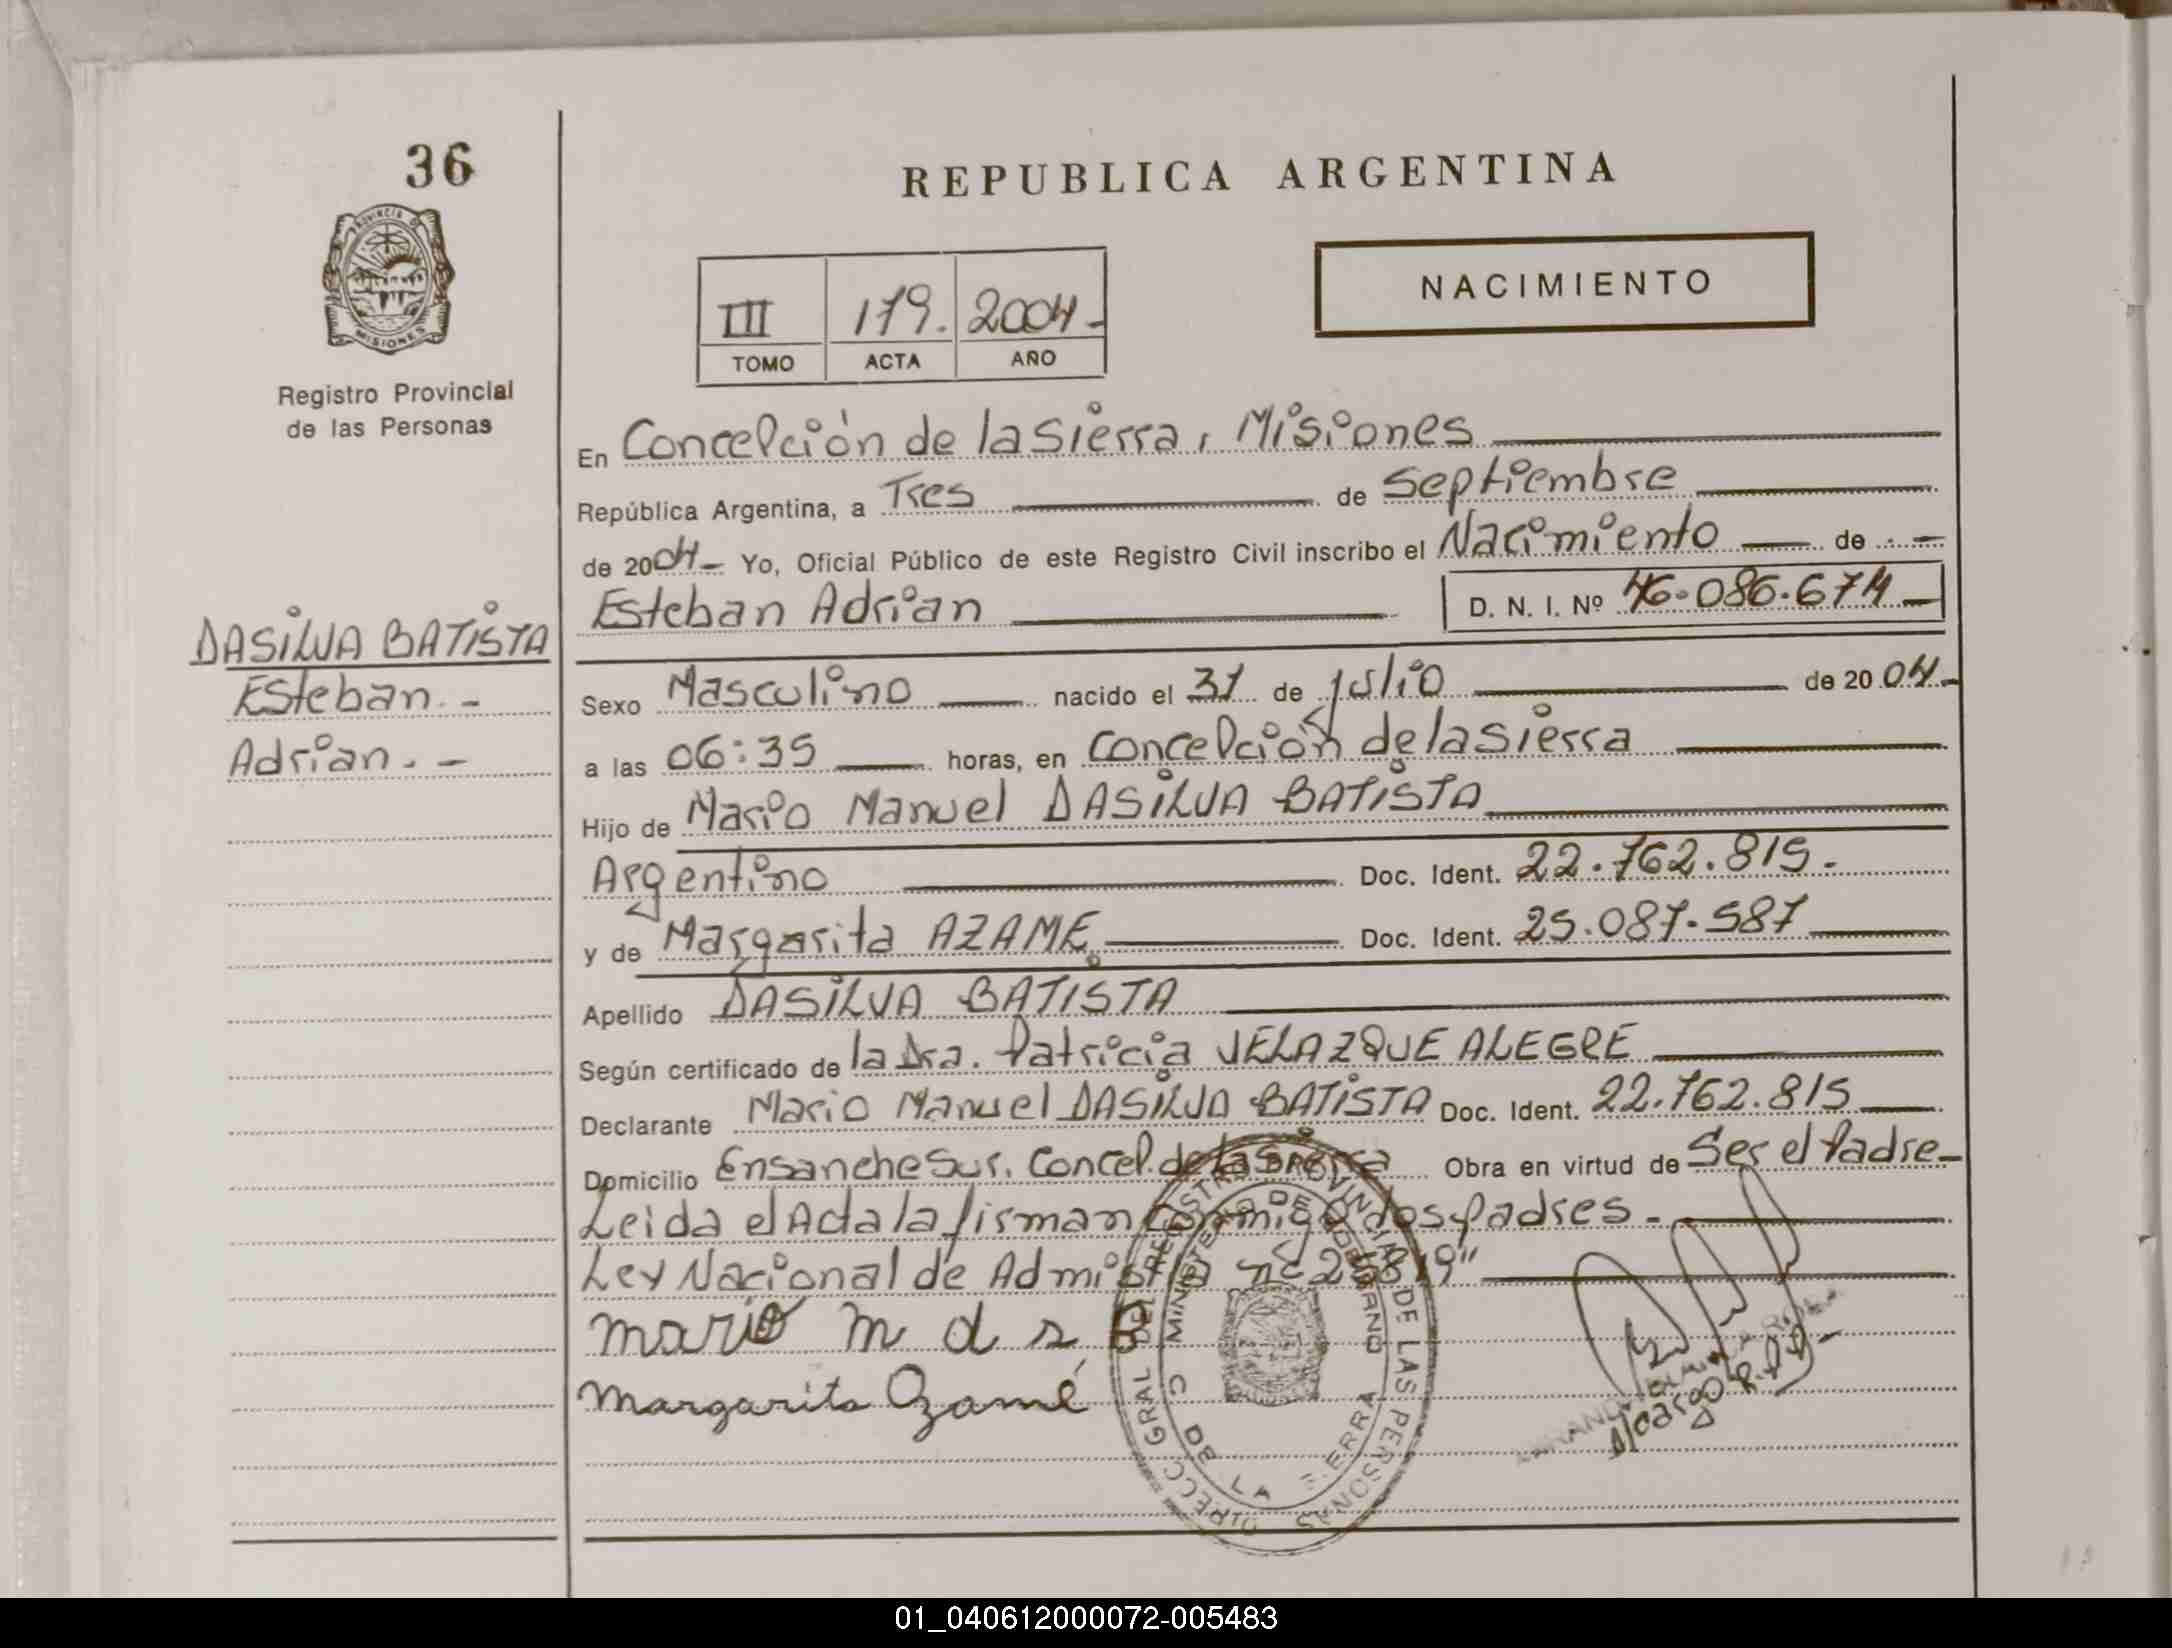 36
REPUBLICA ARGENTINA
PROVINCIA DE MISIONES
Registro Provincial
de las Personas
III 179. 2004-
TOMO ACTA AÑO
NACIMIENTO
En Concepción de la Sierra, Misiones
República Argentina, a Tres de Septiembre
de 2004- Yo, Oficial Público de este Registro Civil inscribo el Nacimiento de -
Esteban Adrian D. N. I. Nº 46.086.674
DASILVA BATISTA
Esteban. -
Adrian. -
Sexo Masculino nacido el 31 de julio de 2004-
a las 06:35 horas, en Concepción de la Sierra
Hijo de Mario Manuel DASILVA BATISTA
Argentino Doc. Ident. 22.762.815.
y de Margarita AZAME Doc. Ident. 25.087.587
Apellido DASILVA BATISTA
Según certificado de la Dra. Patricia VELAZQUE ALEGRE
Declarante Mario Manuel DASILVA BATISTA Doc. Ident. 22.762.815
Domicilio Ensanche Sur. Concep. de la Sierra Obra en virtud de Ser el Padre-
Leida el Acta la firman conmigo los Padres.-
Ley Nacional de Admistia nº 25819"
mario m d s B
margarita Azamé
DIRECC GRAL DEL REGISTRO PROVINCIAL DE LAS PERSONAS
MINISTERIO DE GOBIERNO
DE LA SIERRA
A/cargo R.P.P.-
01_040612000072-005483